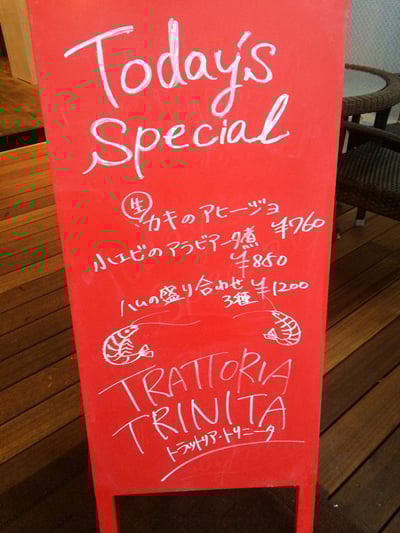 Today's
Special
生 カキのアヒージョ ¥760
小エビのアラビアータ煮
¥850
ハムの盛り合わせ
3種 ¥1200
TRATTORIA
TRINITA
トラットリア・トリニータ